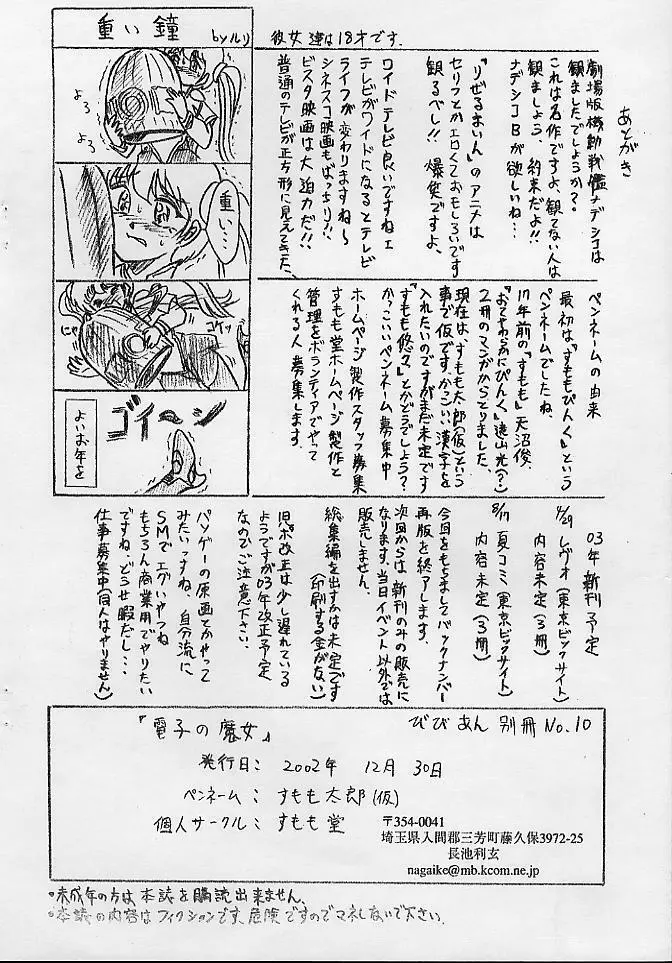 重い鐘
byルリ
よろ
よろ
重い…
にゃ
コケッ
ゴイ〜ン
よいお年を
彼女達は18才です.
あとがき
劇場版機動戦艦ナデシコは
観ましたでしょうか?
これは名作ですよ、観てない人は
観ましょう、約束だよ!!
ナデシコBが欲しいね…
『りぜるまいん』のアニメは
セリフとかエロくておもしろいです
観るべし!! 爆笑ですよ、
ワイドテレビ良いですねェ
テレビがワイドになるとテレビ
ライフが変わりますね〜
シネスコ映画もばっちり!!
ビスタ映画は大迫力だ!!
普通のテレビが正方形に見えてきた、
ペンネームの由来
最初は『すももぴんく』という
ペンネームでしたね、
17年前の『すもも』天沼俊、
『おてやわらかにぴんく』遠山光(?)
2冊のマンガからとりました、
現在は、すもも太郎(仮)という
事で仮です、かっこいい漢字を
入れたいのですがまだ未定です
『すもも悠々』とかどうでしょう?
かっこいいペンネーム募集中
ホームページ製作スタッフ募集
すもも堂ホームページ製作と
管理をボランティアでやって
くれる人募集します、
03年 新刊予定
4/29 レヴォ(東京ビックサイト)
内容未定(3冊)
8/17 夏コミ(東京ビックサイト)
内容未定(3冊)
今回をもちましてバックナンバー
再版を終了します、
次回からは、新刊のみの販売に
なります、当日イベント以外では
販売しません、
総集編を出すかは未定です
(印刷する金がない)
児ポ改正は少し遅れている
ようですが03年改正予定
なのでご注意下さい、
パソゲーの原画とかやって
みたいっすね、自分流に
SMでエグいやつね
もちろん商業用でやりたい
ですね、どうせ暇だし…
仕事募集中(同人はやりません)
『電子の魔女』
びびあん 別冊 No.10
発行日: 2002年 12月 30日
ペンネーム: すもも太郎(仮)
個人サークル: すもも堂
〒354-0041
埼玉県入間郡三芳町藤久保3972-25
長池利玄
nagaike@mb.kcom.ne.jp
・未成年の方は、本誌を購読出来ません、
・本誌の内容はフィクションです、危険ですのでマネしないで下さい、